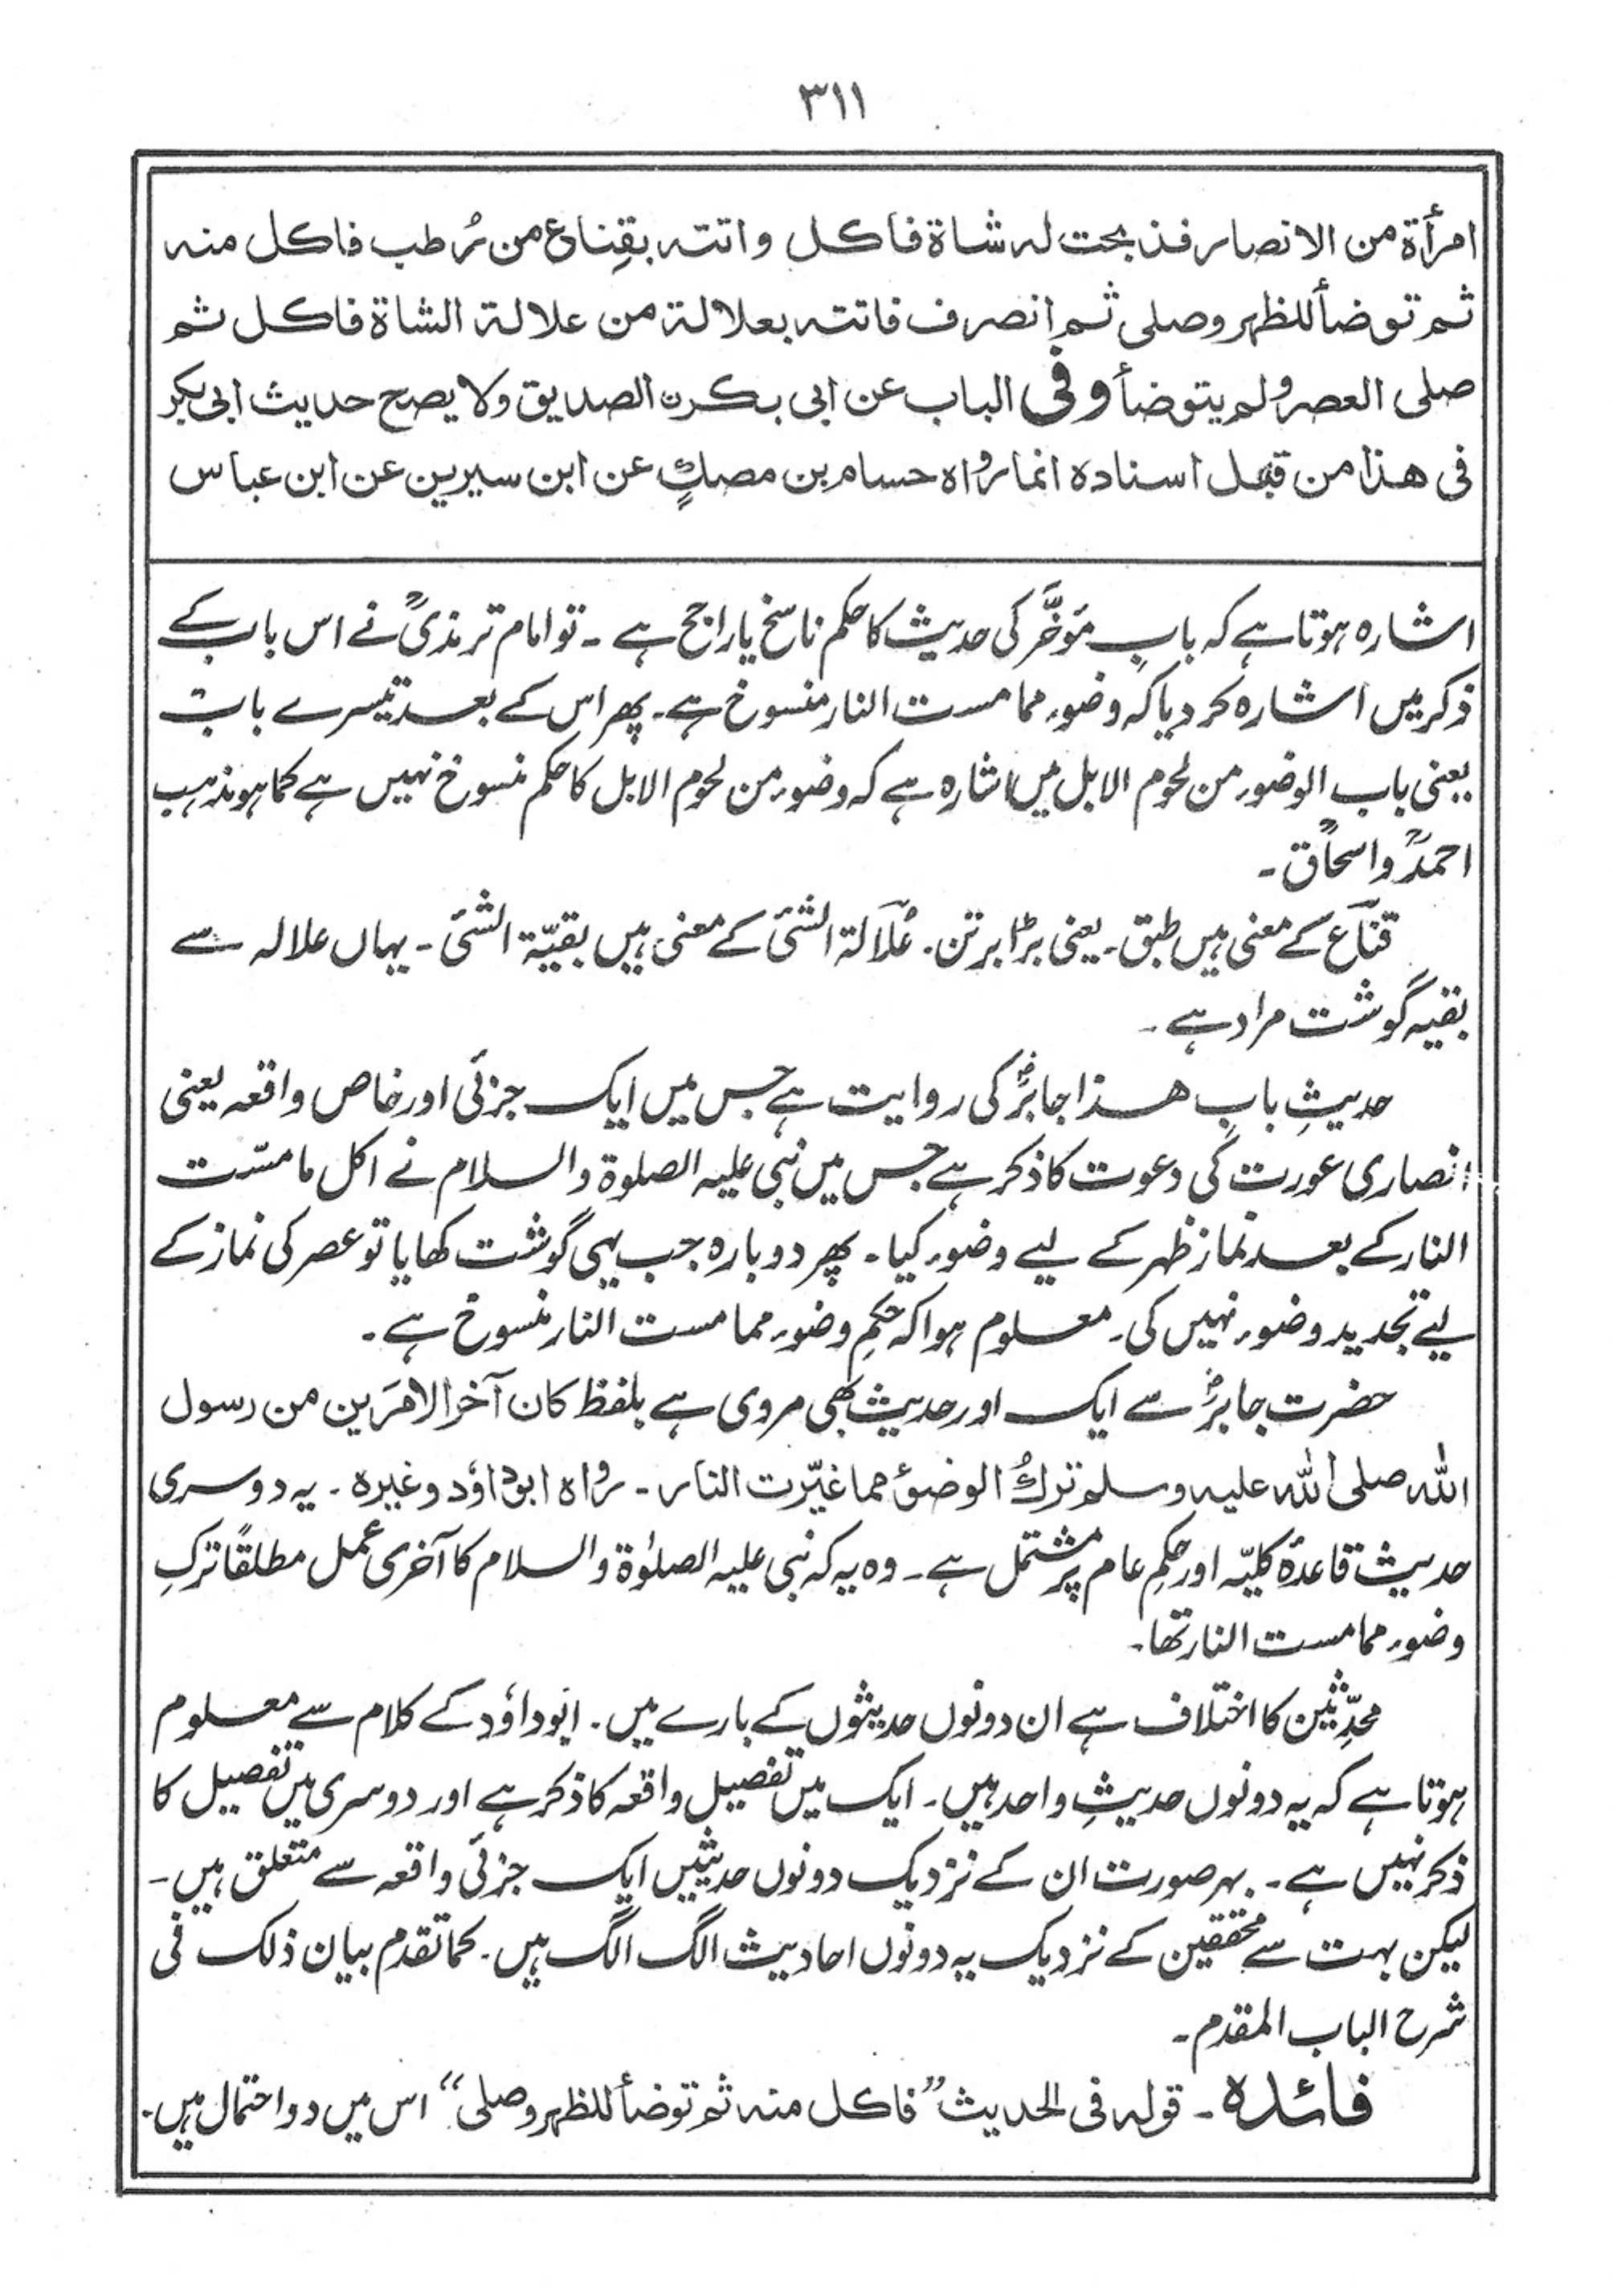 ۳۱۱
امرأة من الانصار فذبحت له شاة فاكل واتته بقِناع من رُطب فاكل منه
ثم توضأ للظهر وصلى ثم انصرف فاتته بعلالة من علالة الشاة فاكل ثم
صلى العصر ولم يتوضأ وفى الباب عن ابى بكرن الصديق ولا يصح حديث ابى بكر
فى هذا من قبل اسناده انما رواه حسام بن مصكٍّ عن ابن سيرين عن ابن عباس
اشارہ ہوتا ہے کہ بابِ مَؤخَّر کی حدیث کا حکم ناسخ یا راجح ہے ۔ تو امام ترمذیؒ نے اس باب کے
ذکر میں اشارہ کر دیا کہ وضوء مما مست النار منسوخ ہے۔ پھر اس کے بعد تیسرے باب
یعنی باب الوضوء من لحوم الابل میں اشارہ ہے کہ وضوء من لحوم الابل کا حکم منسوخ نہیں ہے کما ہو مذہب
احمدؒ واسحاقؒ ۔
قناع کے معنی ہیں طبق۔ یعنی بڑا برتن۔ عُلالۃ الشئ کے معنی ہیں بقیّۃ الشئ ۔ یہاں علالہ سے
بقیہ گوشت مراد ہے ۔
حدیثِ بابِ ھذا جابرؓ کی روایت ہے جس میں ایک جزئی اور خاص واقعہ یعنی
انصاری عورت کی دعوت کا ذکر ہے جس میں نبی علیہ الصلوۃ والسلام نے اکل ما مسّت
النار کے بعد نماز ظہر کے لیے وضوء کیا ۔ پھر دوبارہ جب یہی گوشت کھایا تو عصر کی نماز کے
لیے تجدید وضوء نہیں کی۔ معلوم ہوا کہ حکمِ وضوء مما مست النار منسوخ ہے ۔
حضرت جابرؓ سے ایک اور حدیث بھی مروی ہے بلفظ كان آخر الامرَين من رسول
الله صلى الله عليه وسلم تركُ الوضوءِ مما غيّرت النار ۔ رواہ ابو داؤد وغیرہ ۔ یہ دوسری
حدیث قاعدۂ کلیّہ اور حکمِ عام پر مشتمل ہے ۔ وہ یہ کہ نبی علیہ الصلوٰۃ والسلام کا آخری عمل مطلقًا ترکِ
وضوء مما مست النار تھا۔
محدِّثین کا اختلاف ہے ان دونوں حدیثوں کے بارے میں۔ ابو داؤد کے کلام سے معلوم
ہوتا ہے کہ یہ دونوں حدیثِ واحد ہیں۔ ایک میں تفصیل واقعہ کا ذکر ہے اور دوسری میں تفصیل کا
ذکر نہیں ہے ۔ بہر صورت ان کے نزدیک دونوں حدیثیں ایک جزئی واقعہ سے متعلق ہیں ۔
لیکن بہت سے محققین کے نزدیک یہ دونوں احادیث الگ الگ ہیں ۔ کما تقدم بیان ذلک فی
شرح الباب المقدم ۔
فائدہ ۔ قوله فى الحديث ”فاكل منه ثم توضأ للظهر وصلى“ اس میں دو احتمال ہیں۔